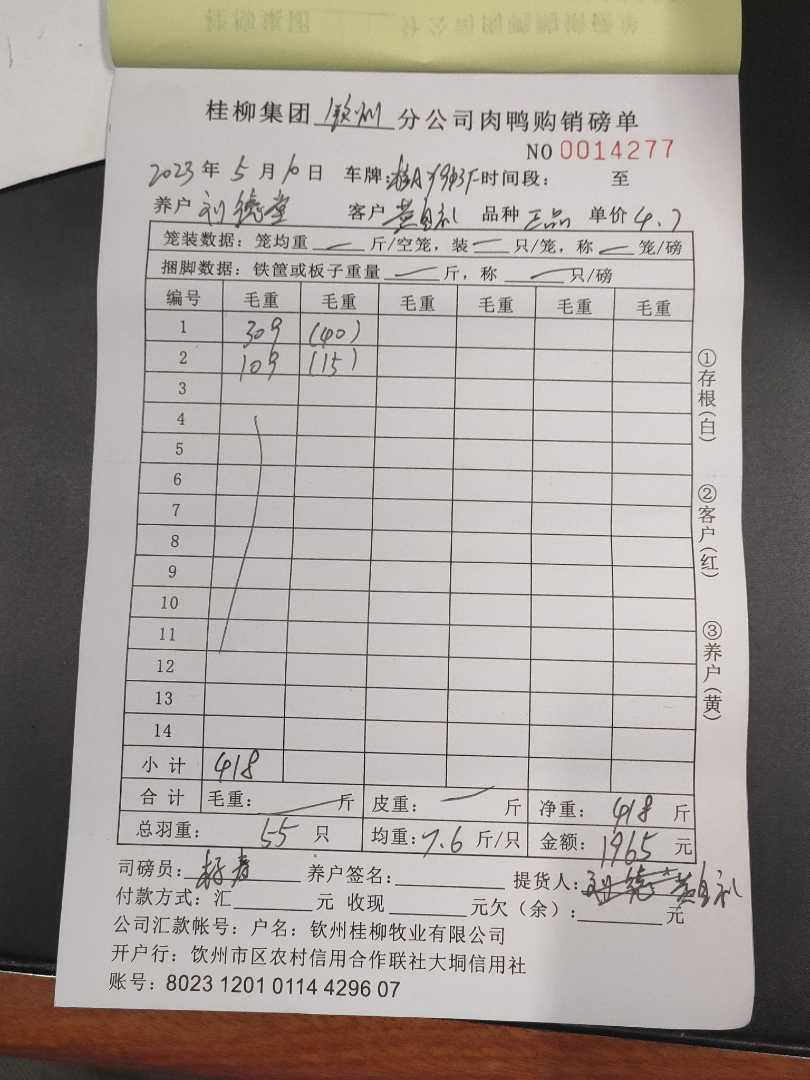 桂柳集团 钦州 分公司肉鸭购销磅单
NO 0014277
2023 年 5 月 10 日 车牌: 时间段: 至
养户 刘德堂 客户 黄自礼 品种 正品 单价 4.7
笼装数据: 笼均重 斤/空笼, 装 只/笼, 称 笼/磅
捆脚数据: 铁筐或板子重量 斤, 称 只/磅
编号 毛重 毛重 毛重 毛重 毛重 毛重
1 309 (40)
2 109 (15)
3
4
5
6
7
8
9
10
11
12
13
14
小计 418
合计 毛重: 斤 皮重: 斤 净重: 418 斤
总羽重: 55 只 均重: 7.6 斤/只 金额: 1965 元
司磅员: 养户签名: 提货人: 黄自礼
付款方式: 汇 元 收现 元欠(余): 元
公司汇款帐号: 户名: 钦州桂柳牧业有限公司
开户行: 钦州市区农村信用合作联社大垌信用社
账号: 8023 1201 0114 4296 07
①存根(白)
②客户(红)
③养户(黄)